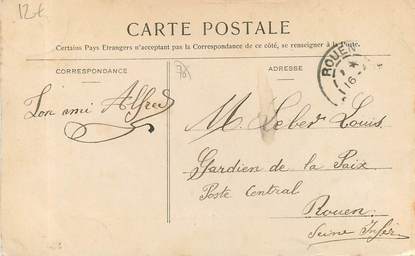 12€
CARTE POSTALE
Certains Pays Etrangers n'acceptant pas la Correspondance de ce côté, se renseigner à la Poste.
CORRESPONDANCE
ADRESSE
ROUEN
16
Ton ami Alfred
M. Leber Louis
Gardien de la Paix
Poste Central
Rouen
Seine Infér